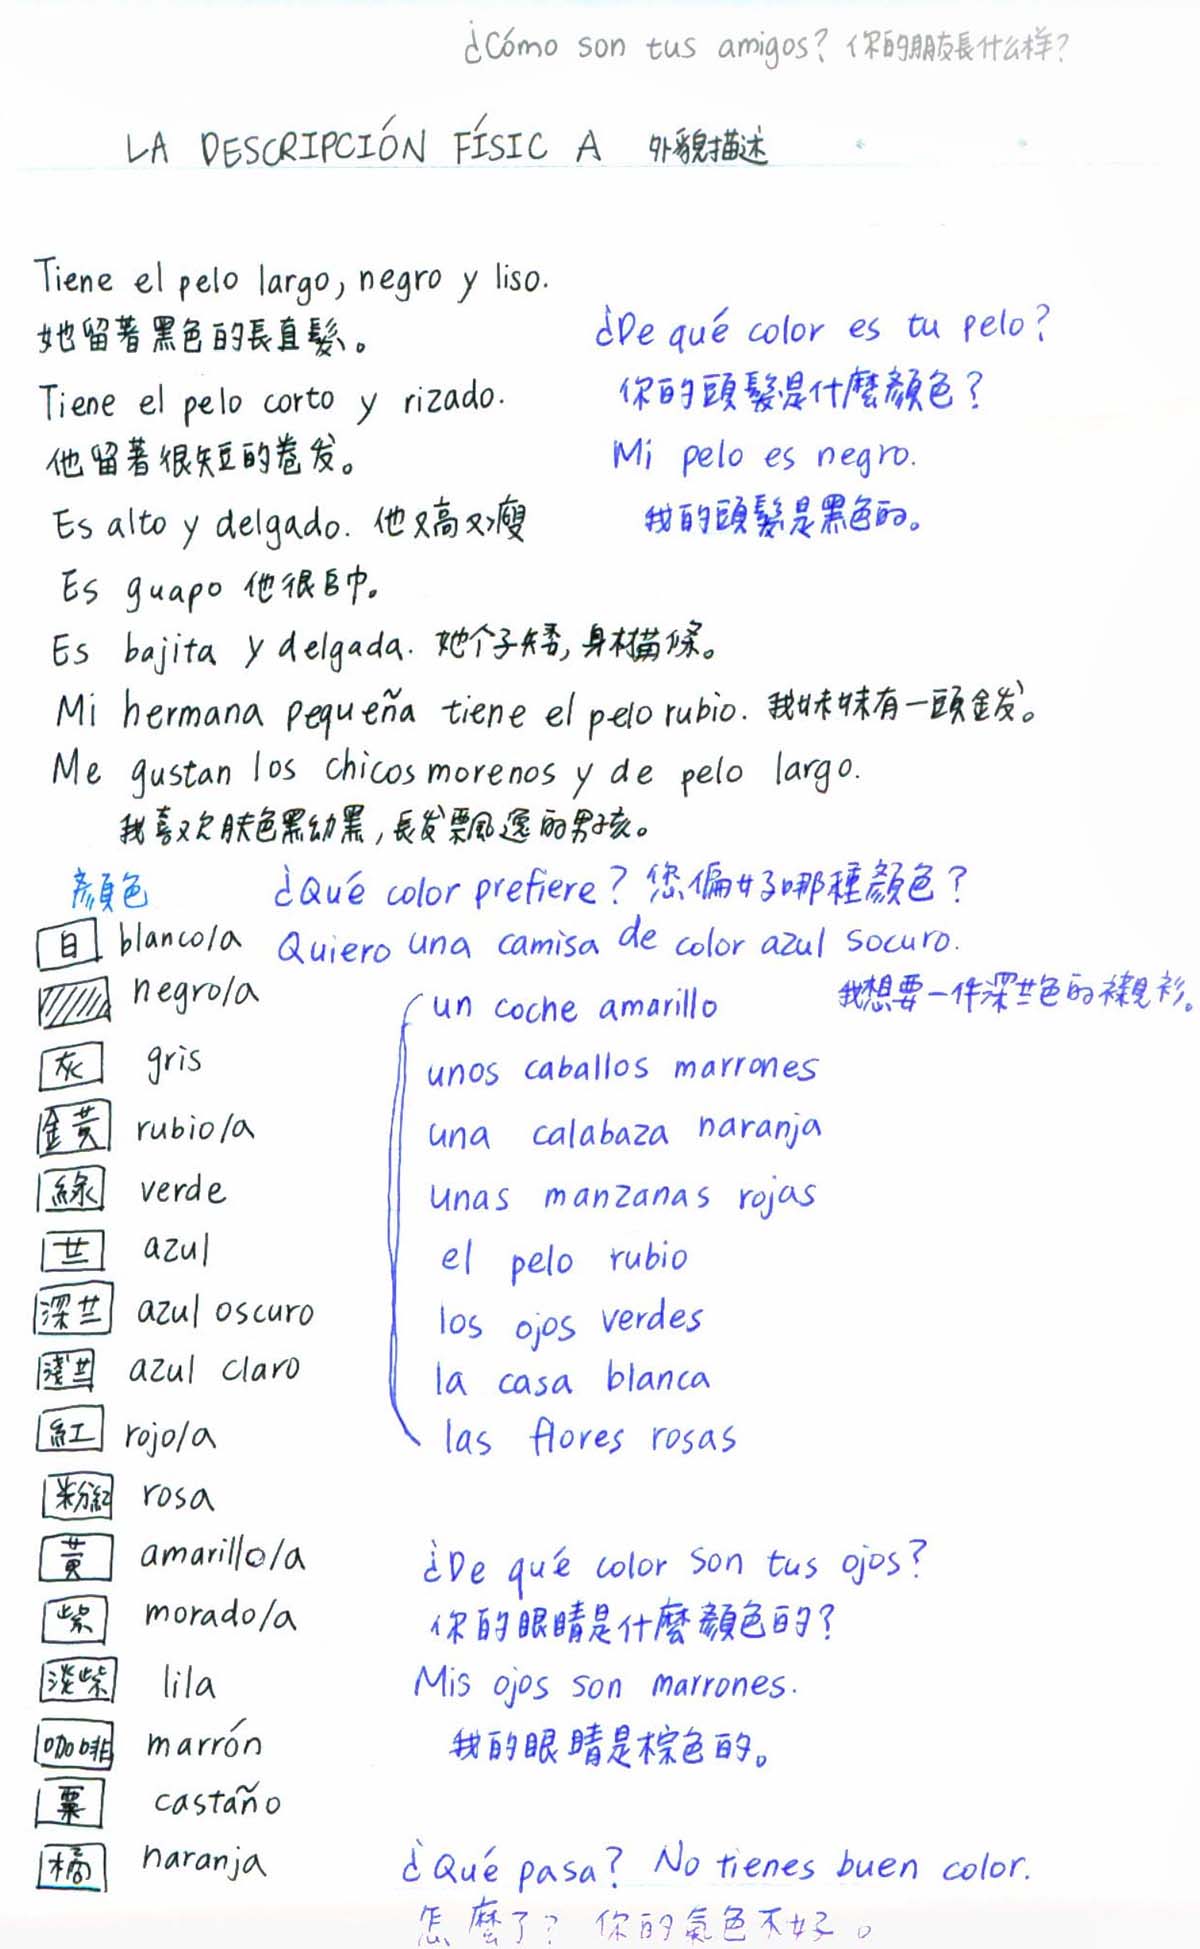 ¿Cómo son tus amigos? 你的朋友長什么样?
LA DESCRIPCIÓN FÍSICA 外貌描述
Tiene el pelo largo, negro y liso.
她留著黑色的長直髮。
Tiene el pelo corto y rizado.
他留著很短的卷发。
Es alto y delgado. 他又高又瘦
Es guapo 他很帅。
Es bajita y delgada. 她个子矮,身材苗條。
¿De qué color es tu pelo?
你的頭髮是什麼顏色?
Mi pelo es negro.
我的頭髮是黑色的。
Mi hermana pequeña tiene el pelo rubio. 我妹妹有一頭金发。
Me gustan los chicos morenos y de pelo largo.
我喜欢肤色黑黝黑,長发飄逸的男孩。
顏色
¿Qué color prefiere? 您偏好哪種顏色?
Quiero una camisa de color azul socuro.
我想要一件深艺色的襯衫。
白 blanco/a
negro/a
灰 gris
金黃 rubio/a
綠 verde
艺 azul
深艺 azul oscuro
淺艺 azul claro
紅 rojo/a
粉紅 rosa
黃 amarillo/a
紫 morado/a
淡紫 lila
咖啡 marrón
粟 castaño
橘 naranja
un coche amarillo
unos caballos marrones
una calabaza naranja
unas manzanas rojas
el pelo rubio
los ojos verdes
la casa blanca
las flores rosas
¿De qué color son tus ojos?
你的眼睛是什麼顏色的?
Mis ojos son marrones.
我的眼睛是棕色的。
¿Qué pasa? No tienes buen color.
怎麼了? 你的氣色不好。